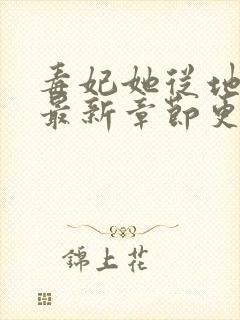 毒妃她从地
最新章节更
錦上花